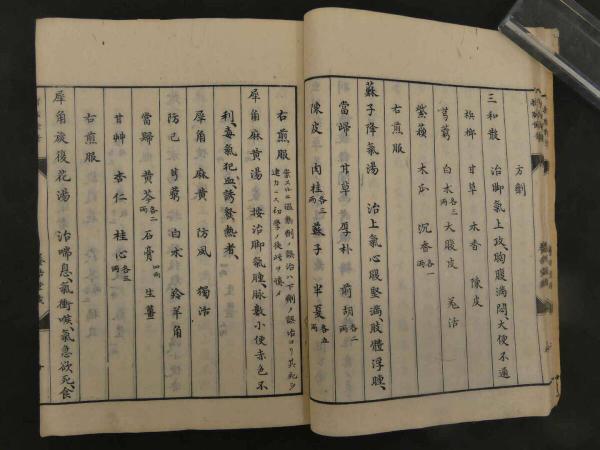 方劑
三和散 治脚氣上攻、胸腹滿悶、大便不通
檳榔 甘草 木香 陳皮
芎藭 白朮 各三兩 大腹皮 羌活
紫蘇 木瓜 沉香 各一兩
右煎服
蘇子降氣湯 治上氣心腹堅滿、肢體浮腫、
當歸 甘草 厚朴 前胡 各二兩
陳皮 肉桂 各三兩 蘇子 半夏 各五兩
右煎服
犀角麻黄湯 按治脚氣腫、脉數小便赤色不
利、毒氣犯血、誘發熱者、
犀角 麻黄 防風 獨活
防己 芎藭 白朮 羚羊角
當歸 黄芩 各二兩 石膏 四兩 生薑
甘艸 杏仁 桂心 各三兩
右煎服
犀角旋復花湯 治喘息氣衝喉、氣急欲死、食